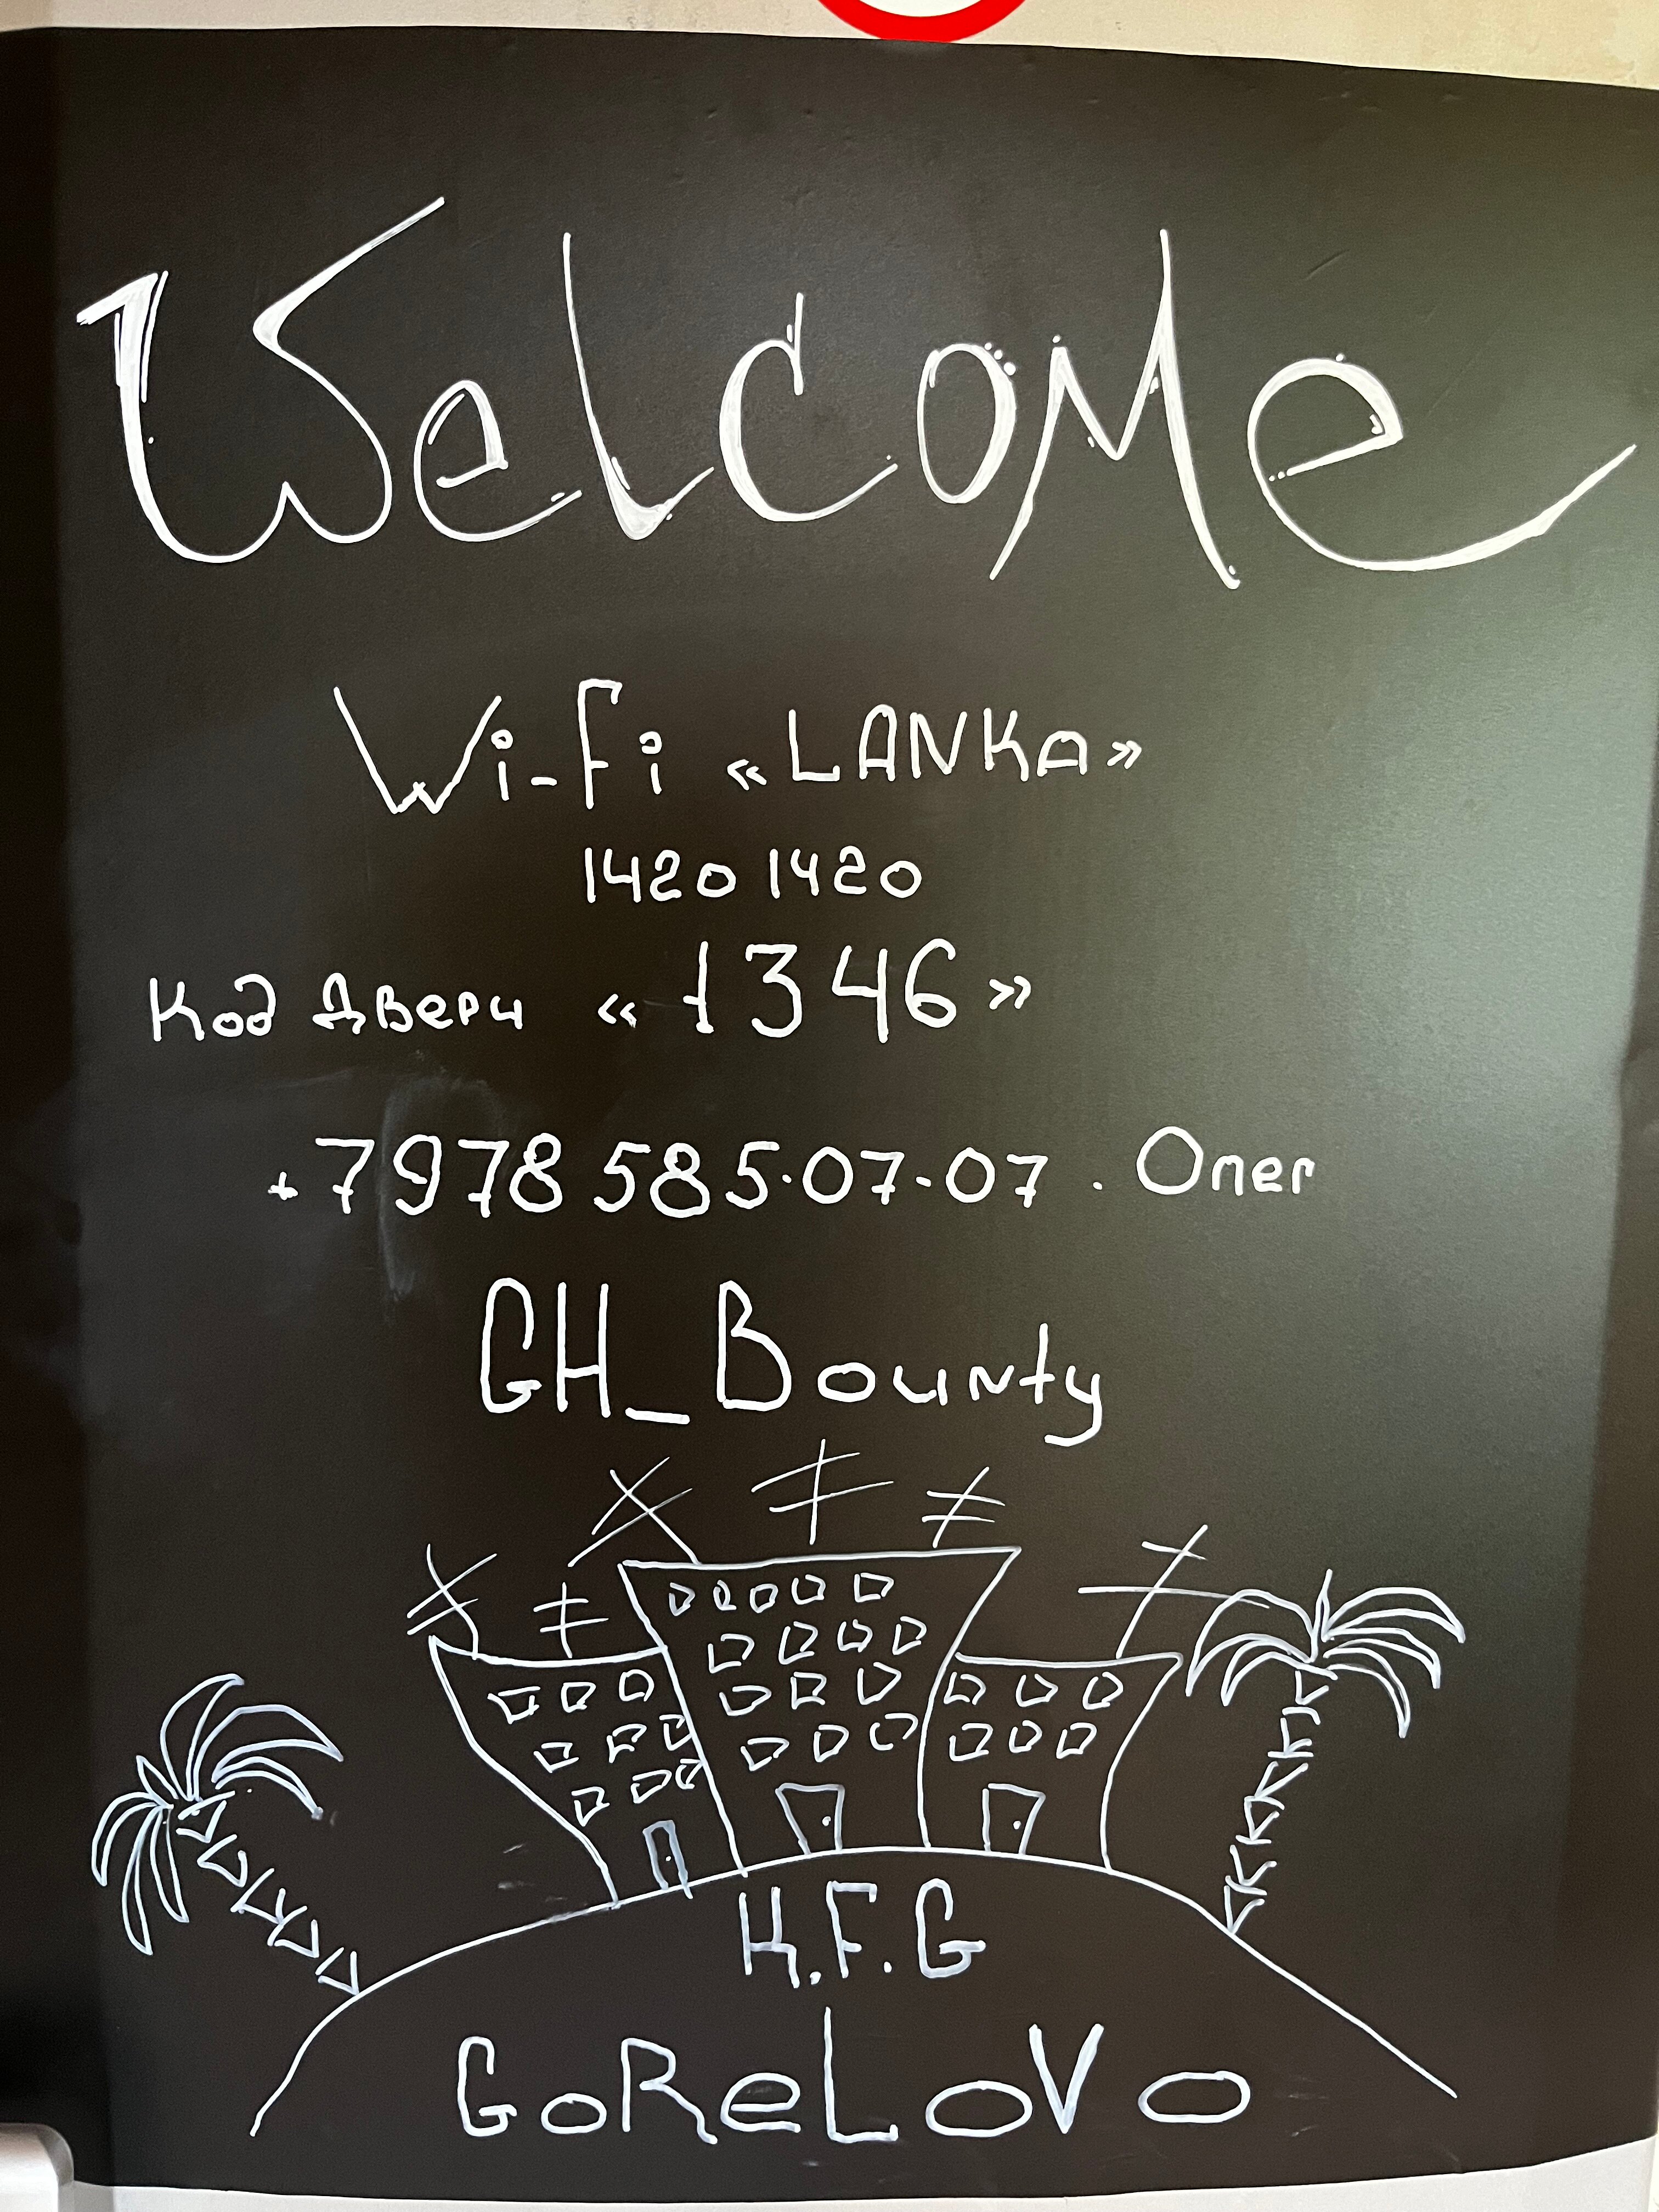 WelcoMe
Wi-Fi «LANKA»
1420 1420
Код Двери «1346»
+7978 585·07-07. Олег
GH_Bounty
K.F.G
GoReLoVo